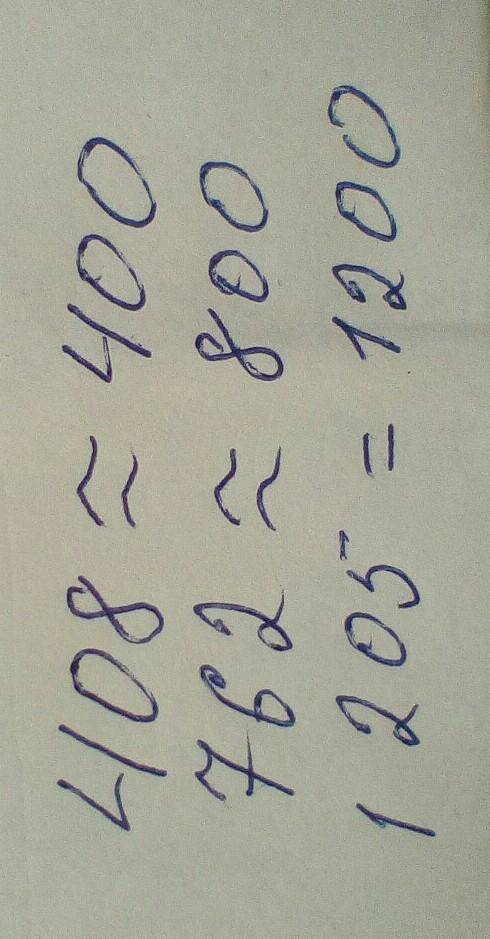 408 ≈ 400
762 ≈ 800
1 205 = 1200